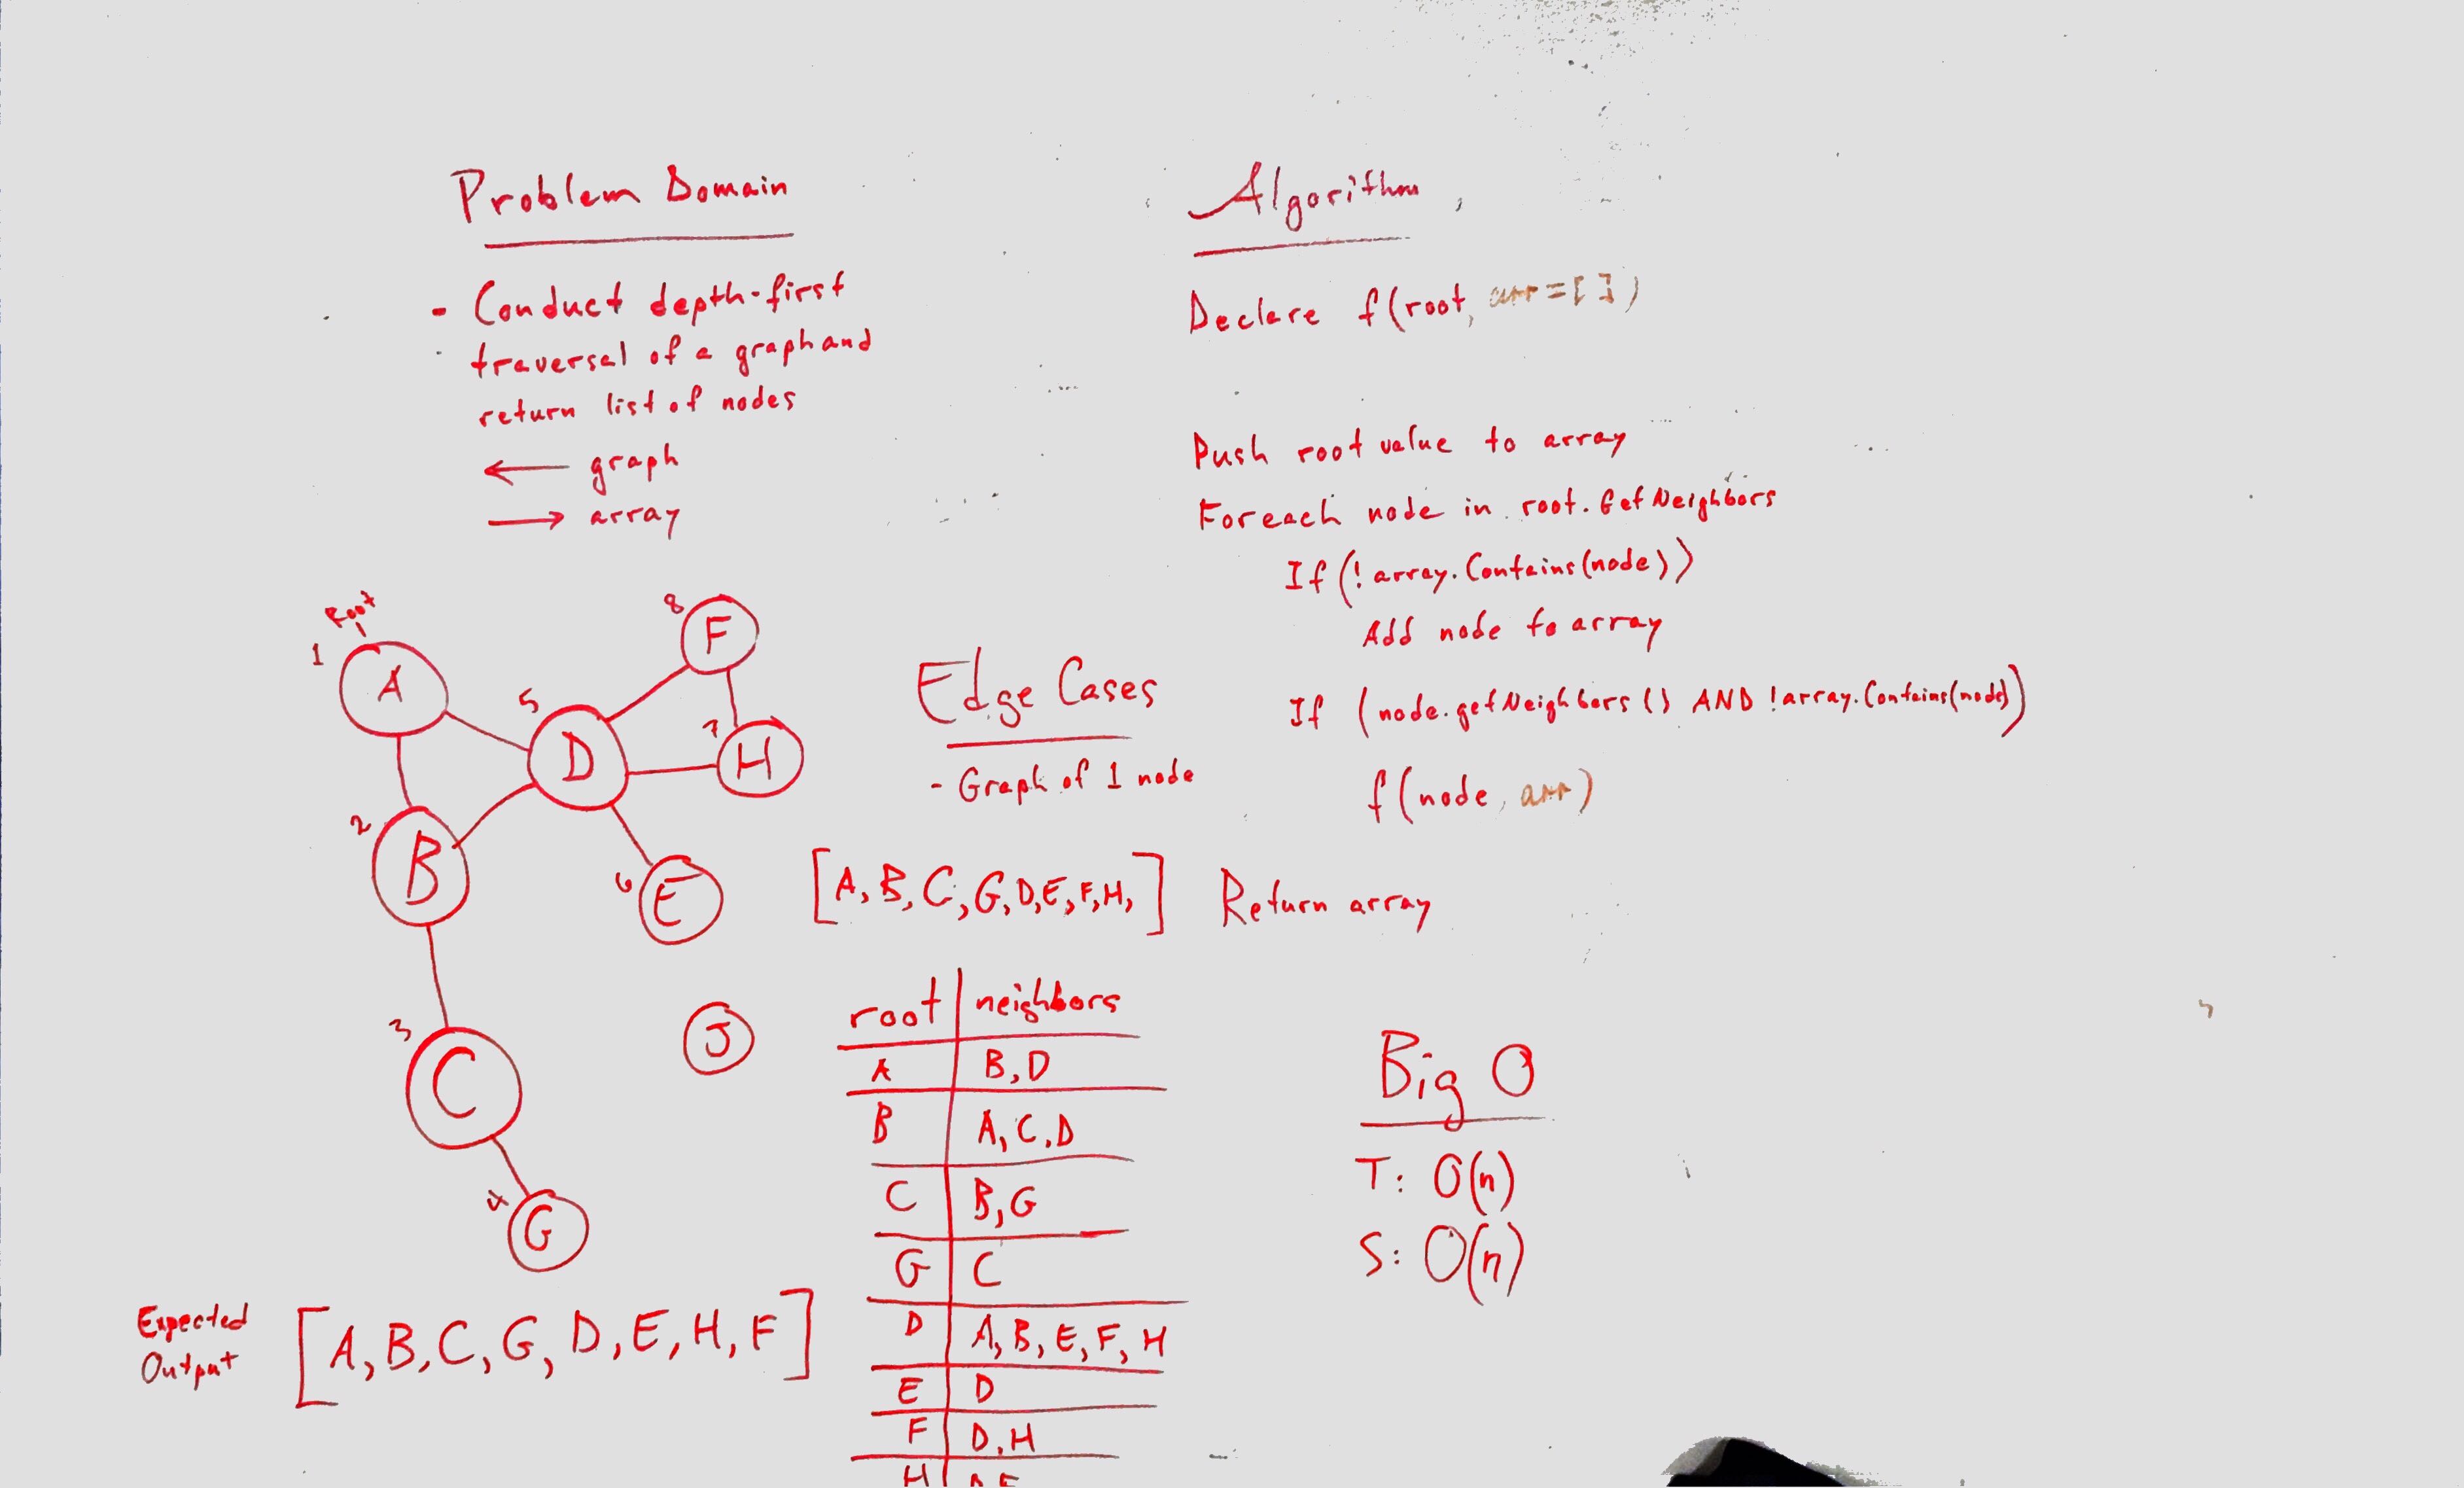 Problem Domain
- Conduct depth-first
traversal of a graph and
return list of nodes
← graph
→ array
Root
1
A
2
B
3
C
4
G
5
D
6
E
7
H
8
F
J
Expected
Output
[A, B, C, G, D, E, H, F]
Edge Cases
- Graph of 1 node
[A, B, C, G, D, E, F, H,]
root | neighbors
A | B, D
B | A, C, D
C | B, G
G | C
D | A, B, E, F, H
E | D
F | D, H
H
Algorithm
Declare f(root, arr=[])
Push root value to array
Foreach node in root.GetNeighbors
If (!array.Contains(node))
Add node to array
If (node.getNeighbors() AND !array.Contains(node))
f(node, arr)
Return array
Big O
T: O(n)
S: O(n)